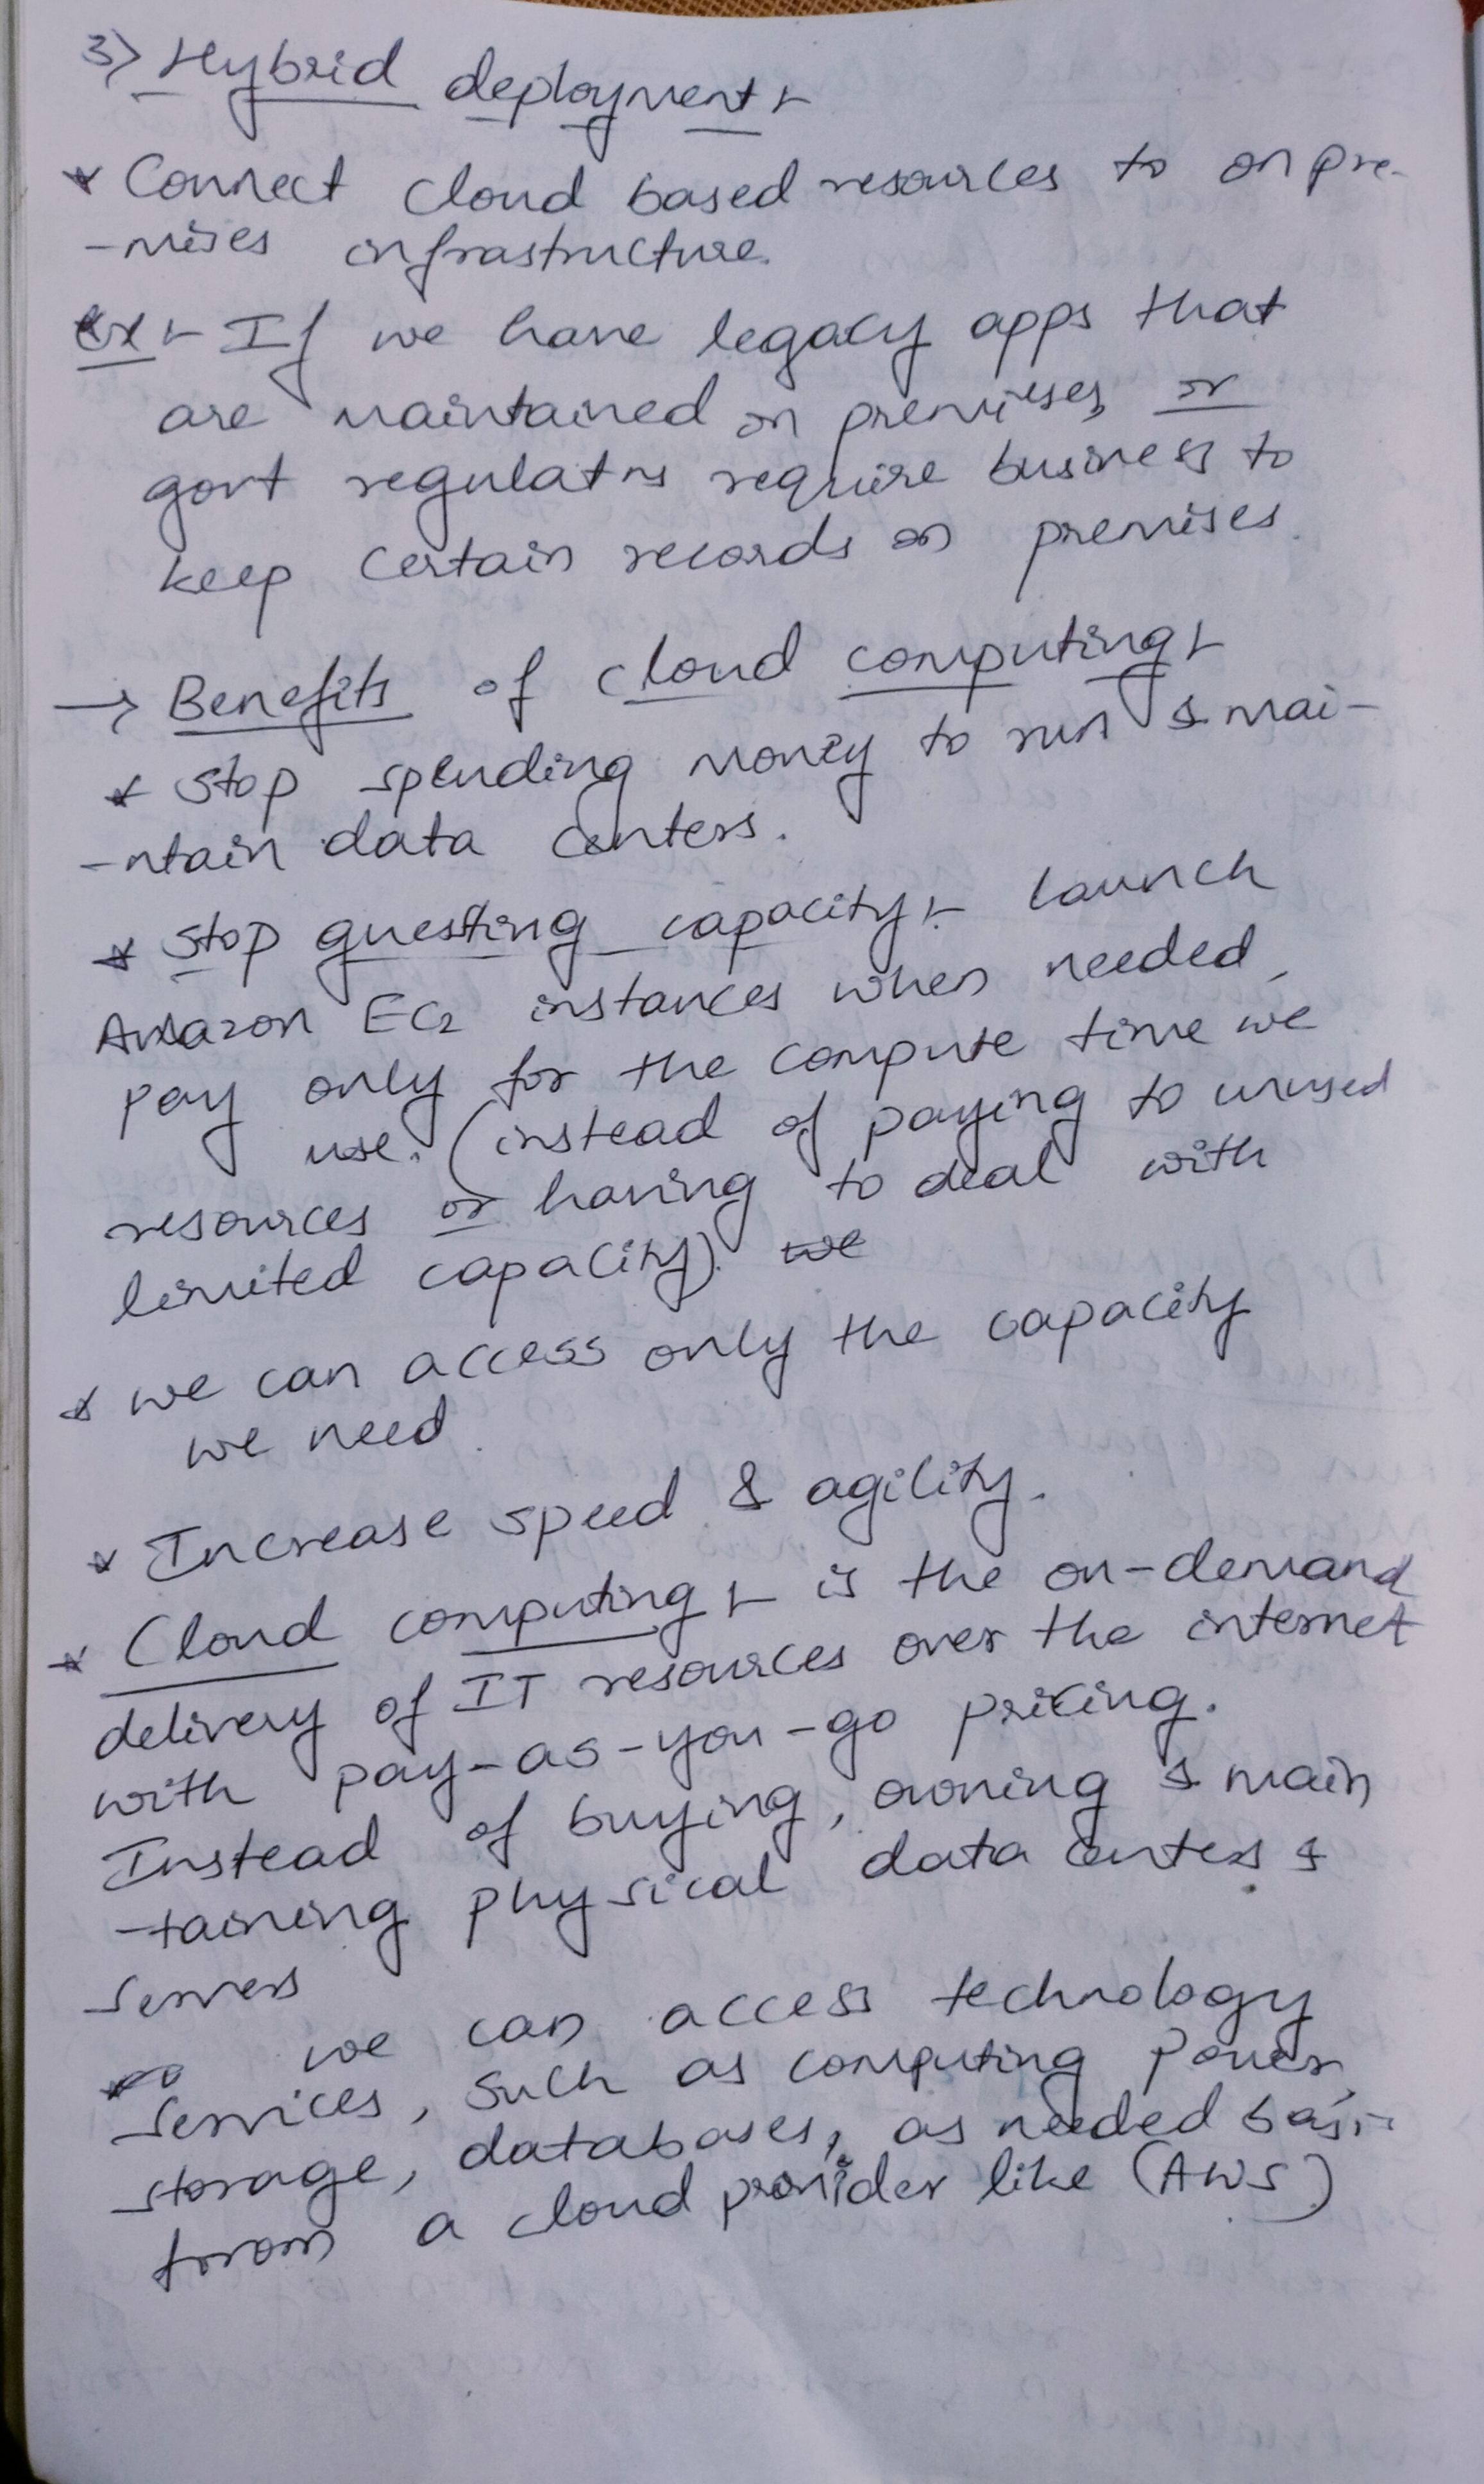 3) Hybrid deployment :-
* Connect cloud based resources to on pre-
-mises infrastructure.
Ex :- If we have legacy apps that
are maintained on premises, or
govt regulatns require business to
keep certain records on premises.
→ Benefits of cloud computing :-
* Stop spending money to run & mai-
-ntain data centers.
* Stop guesting capacity :- launch
Amazon EC2 instances when needed,
pay only for the compute time we
use. (instead of paying to unused
resources or having to deal with
limited capacity). we
* we can access only the capacity
we need.
* Increase speed & agility.
* Cloud computing :- is the on-demand
delivery of IT resources over the internet
with pay-as-you-go pricing.
Instead of buying, owning & main
-taining physical data centers &
servers
we can access technology
services, such as computing power,
storage, databases, as needed basis
from a cloud provider like (AWS)